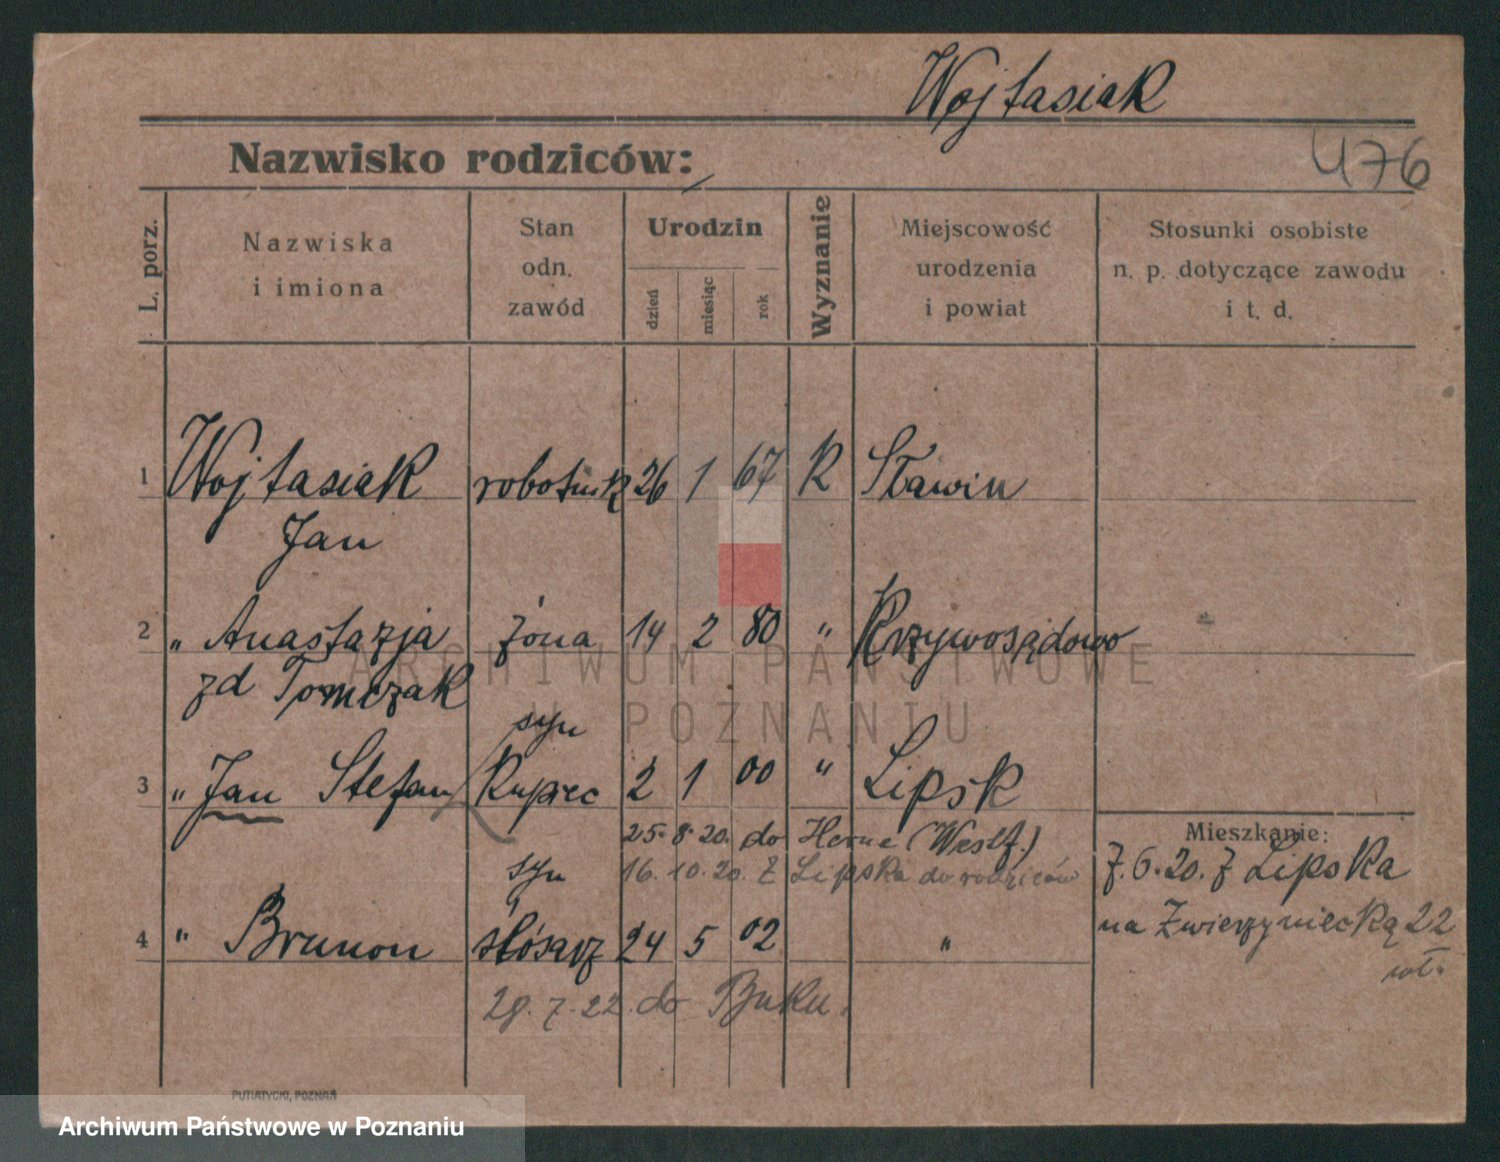 Wojtasiak
476
Nazwisko rodziców:
L. porz.
Nazwiska
i imiona
Stan
odn.
zawód
Urodzin
dzień
miesiąc
rok
Wyznanie
Miejscowość
urodzenia
i powiat
Stosunki osobiste
n. p. dotyczące zawodu
i t. d.
1 Wojtasiak robotnik 26 1 67 K Sławin
Jan
2 " Anastazja żona 14 2 80 " Krzywosądowo
zd Tomczak
syn
3 " Jan Stefan Kupiec 2 1 00 " Lipsk
25. 8. 20. do Herne (Westf.)
16. 10. 20. z Lipska do rodziców
Mieszkanie:
7. 6. 20. z Lipska
na Zwierzyniecką 22
syn
4 " Brunon ślósarz 24 5 02 "
28. 7. 22. do Buku.
PUTIATYCKI, POZNAŃ
ARCHIWUM PAŃSTWOWE
W POZNANIU
Archiwum Państwowe w Poznaniu